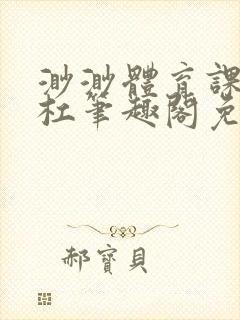 渺渺體育課
杜筆趣閣免
郝寶貝